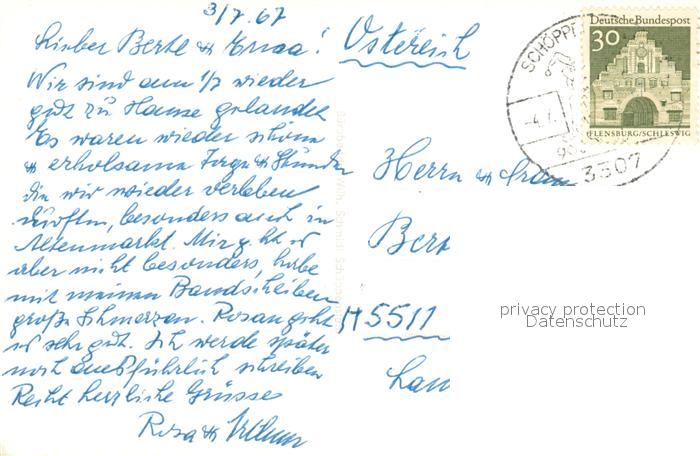 3/7.67
Lieber Bertl & Erna!
Wir sind am 1/7 wieder
gut zu Hause gelandet
Es waren wieder schöne
& erholsame Tage & Stunden
die wir wieder verleben
durften, besonders auch in
Altenmarkt. Mir geht es
aber nicht besonders, habe
mit meinen Bandscheiben
große Schmerzen. Rosan geht
es sehr gut. Ich werde später
noch ausführlich schreiben
Recht herzliche Grüsse
Rosa &
Östereich
Herrn & Frau
Bert
A 5511
Lam
Deutsche Bundespost
30
FLENSBURG/SCHLESWIG
SCHÖPPE
-4.7.
3307
privacy protection
Datenschutz